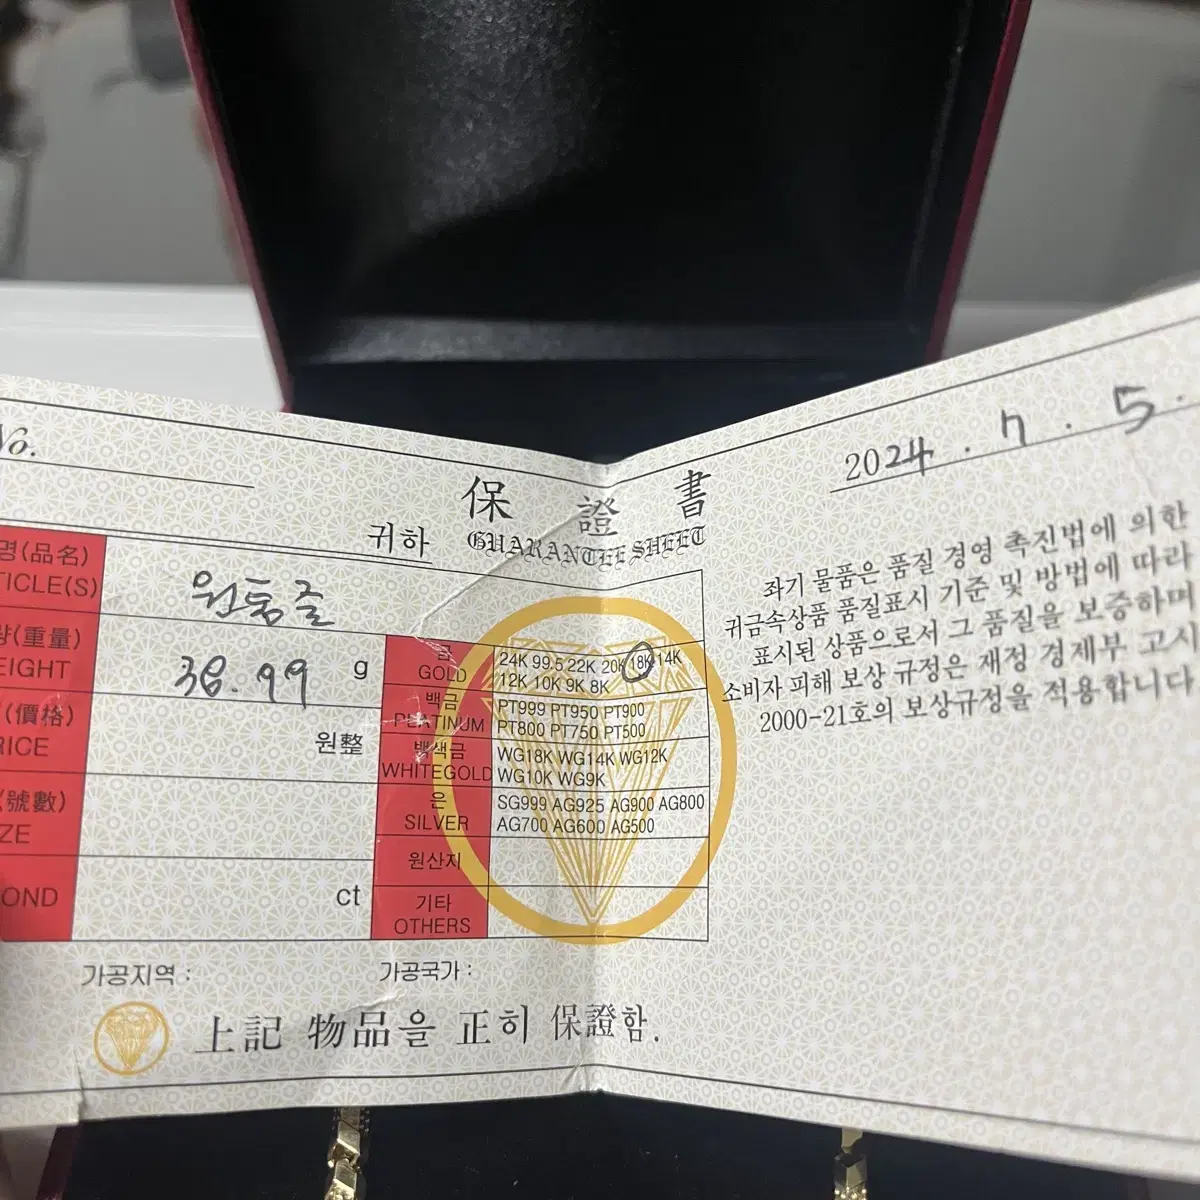 No.
2024. 7. 5.
保證書
귀하
GUARANTEE SHEET
명(品名)
TICLE(S)
원통줄
량(重量)
EIGHT
38.99 g
(價格)
RICE
원整
(號數)
ZE
OND
ct
금
GOLD
24K 99.5 22K 20K 18K 14K
12K 10K 9K 8K
백금
PLATINUM
PT999 PT950 PT900
PT800 PT750 PT500
백색금
WHITEGOLD
WG18K WG14K WG12K
WG10K WG9K
은
SILVER
SG999 AG925 AG900 AG800
AG700 AG600 AG500
원산지
기타
OTHERS
가공지역 :
가공국가 :
上記 物品을 正히 保證함.
좌기 물품은 품질 경영 촉진법에 의한
귀금속상품 품질표시 기준 및 방법에 따라
표시된 상품으로서 그 품질을 보증하며
소비자 피해 보상 규정은 재정 경제부 고시
2000-21호의 보상규정을 적용합니다